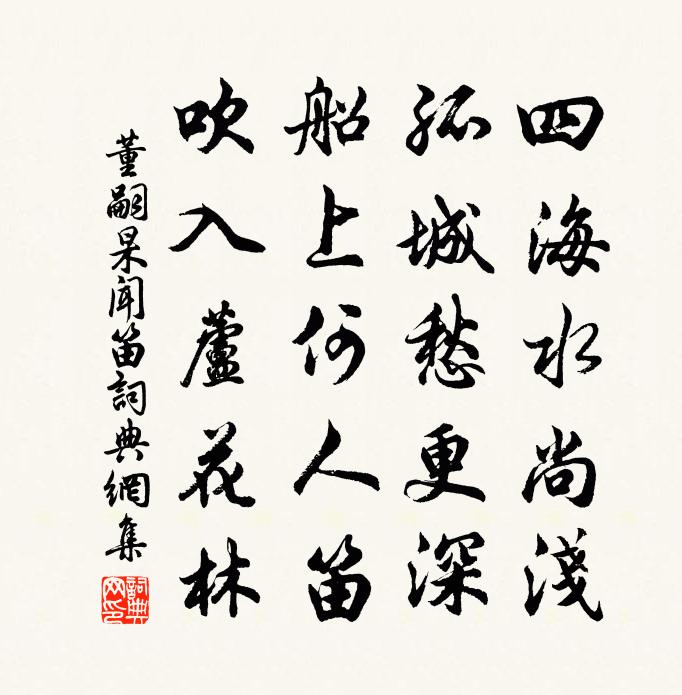 四海水尚淺
孤城愁更深
船上何人笛
吹入蘆花林
董嗣杲聞笛詞典網集
詞典
網印